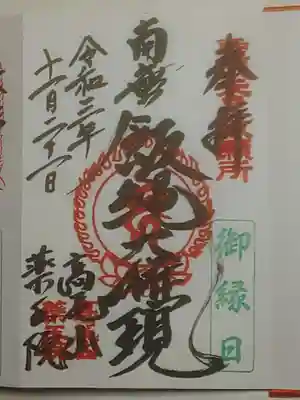 奉拝
御縁日
南無飯縄大権現
令和二年
十一月二十一日
高尾山
薬王院